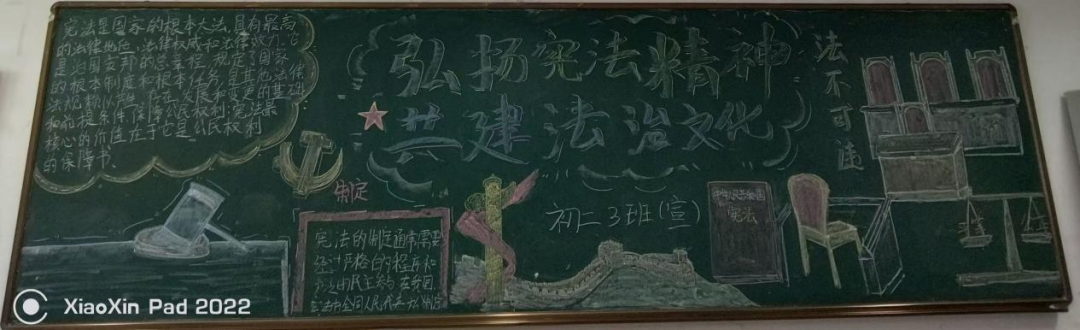 宪法是国家的根本大法,具有最高
的法律地位、法律权威和法律效力。它
是治国安邦的总章程,规定了国家
的根本制度和根本任务,是其他法律
法规赖以
和前提条件保障公民权利,宪法最
核心的价值在于它是公民权利
的保障书。
弘扬宪法精神
共建法治文化
法不可违
制定
宪法的制定通常需要
经严格的程序和
的民主
全国人民
初二3班(宣)
中华人民共和国
宪法
XiaoXin Pad 2022